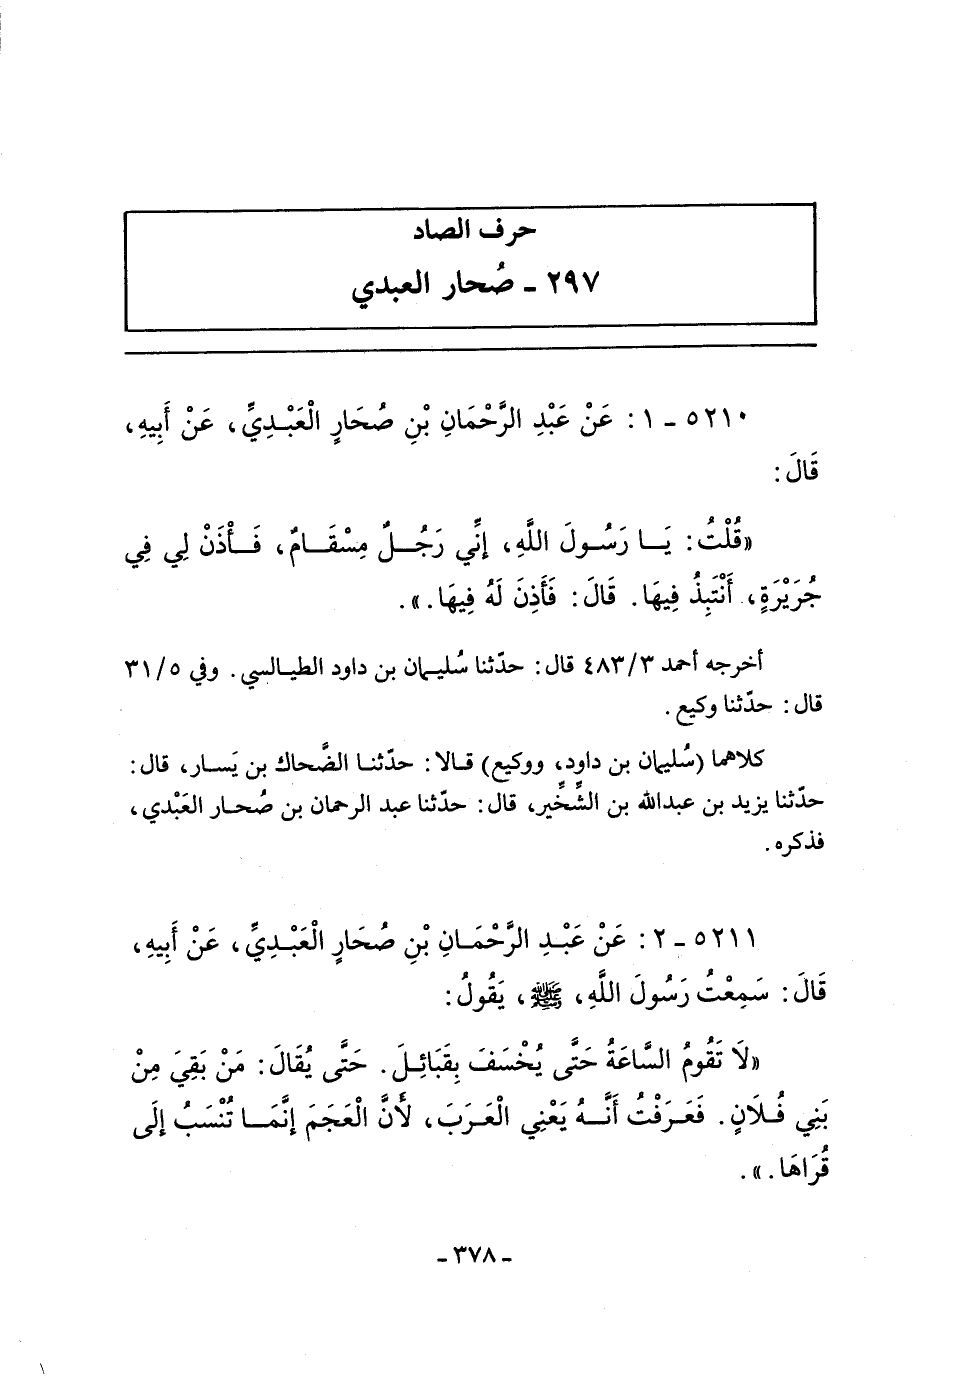 حرف الصاد
٢٩٧ - صُحار العبدي
٥٢١٠ - ١ : عَنْ عَبْدِ الرَّحْمَانِ بْنِ صُحَارٍ الْعَبْدِيِّ، عَنْ أَبِيهِ،
قَالَ :
«قُلْتُ : يَا رَسُولَ اللَّهِ، إِنِّي رَجُلٌ مِسْقَامٌ، فَأْذَنْ لِي فِي
جُرَيْرَةٍ، أَنْتَبِذُ فِيهَا. قَالَ : فَأَذِنَ لَهُ فِيهَا.».
أخرجه أحمد ٤٨٣/٣ قال : حدّثنا سُليمان بن داود الطيالسي. وفي ٣١/٥
قال : حدّثنا وكيع.
كلاهما (سُليمان بن داود، ووكيع) قالا : حدّثنا الضَّحاك بن يَسار، قال :
حدّثنا يزيد بن عبدالله بن الشِّخِّير، قال : حدّثنا عبد الرحمان بن صُحار العَبْدي،
فذكره.
٥٢١١ - ٢ : عَنْ عَبْدِ الرَّحْمَانِ بْنِ صُحَارٍ الْعَبْدِيِّ، عَنْ أَبِيهِ،
قَالَ : سَمِعْتُ رَسُولَ اللَّهِ، ﷺ، يَقُولُ :
«لَا تَقُومُ السَّاعَةُ حَتَّى يُخْسَفَ بِقَبَائِلَ. حَتَّى يُقَالَ : مَنْ بَقِيَ مِنْ
بَنِي فُلَانٍ. فَعَرَفْتُ أَنَّهُ يَعْنِي الْعَرَبَ، لأَنَّ الْعَجَمَ إِنَّمَا تُنْسَبُ إِلَى
قُرَاهَا.».
- ٣٧٨ -